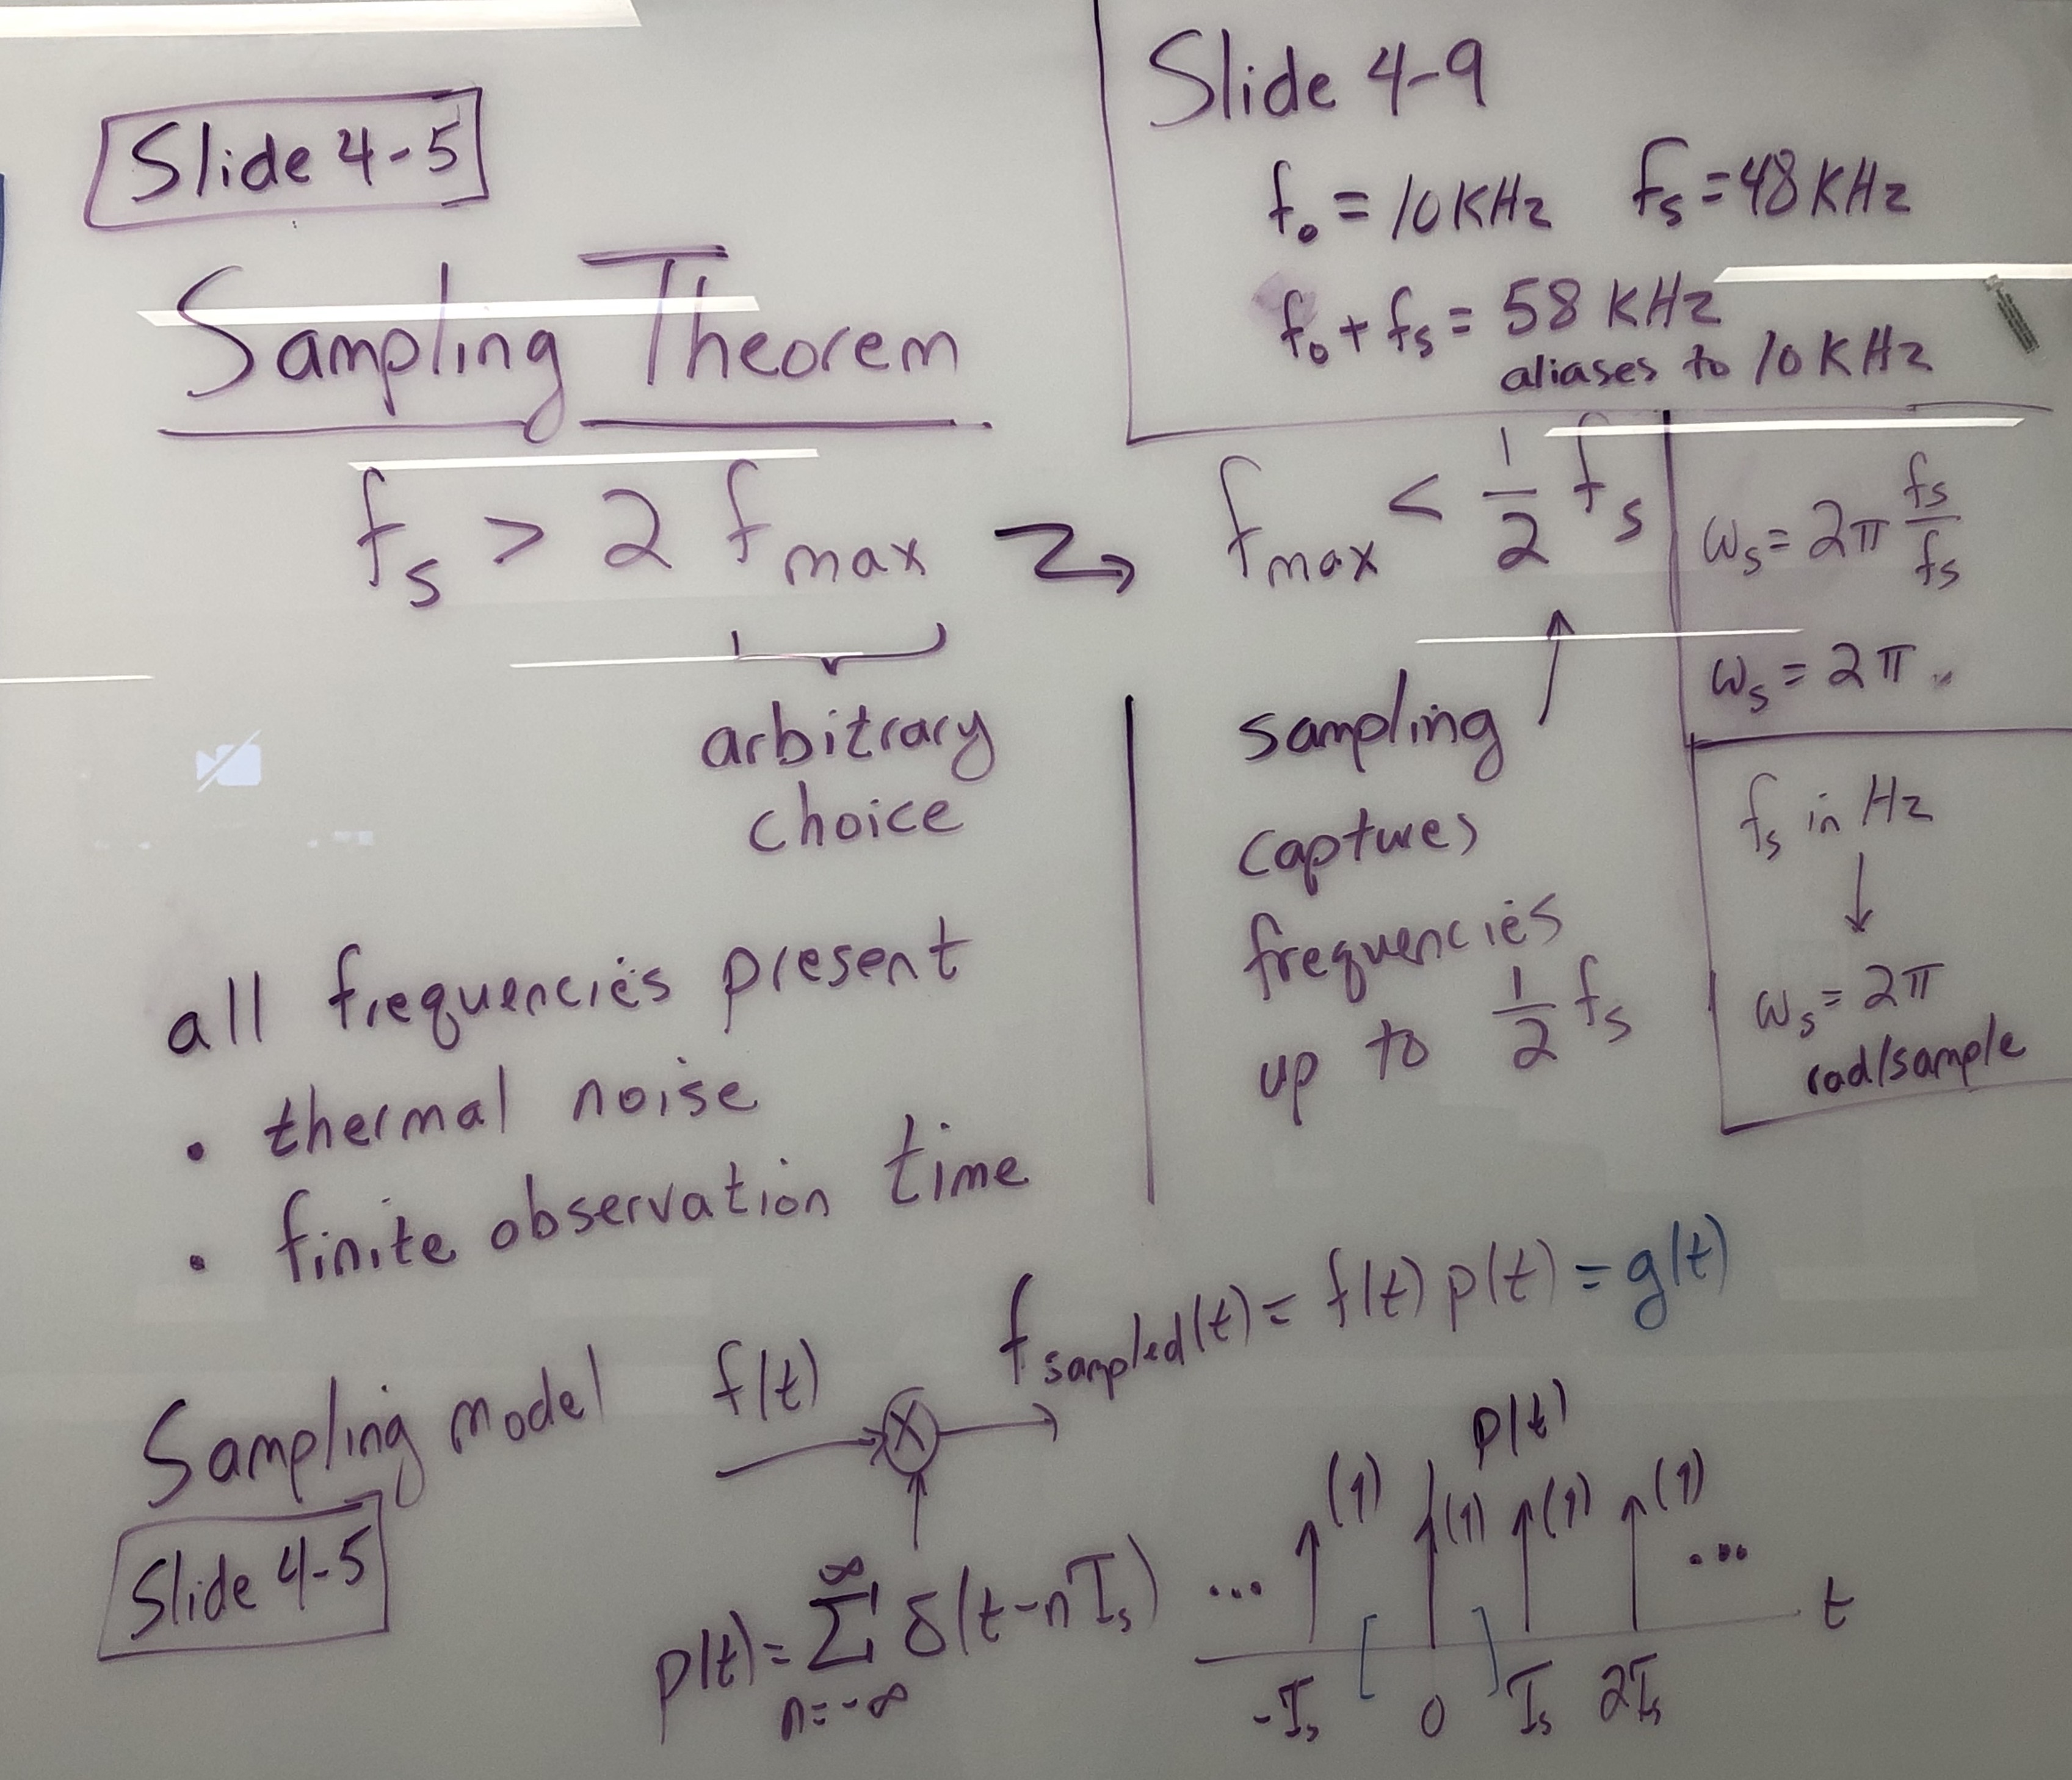 Slide 4-5
Sampling Theorem
f_s > 2 f_max → f_max < 1/2 f_s
arbitrary
choice
sampling
captures
frequencies
up to 1/2 f_s
all frequencies present
• thermal noise
• finite observation time
Slide 4-9
f_0 = 10 KHz f_s = 48 KHz
f_0 + f_s = 58 KHz
aliases to 10 KHz
ω_s = 2π f_s/f_s
ω_s = 2π
f_s in Hz
↓
ω_s = 2π
rad/sample
Sampling model
Slide 4-5
f(t)
X
f_sampled(t) = f(t) p(t) = g(t)
p(t) = Σ_{n=-∞}^{∞} δ(t-nT_s)
p(t)
... (1) (1) (1) (1) ...
t
-T_s [ 0 ] T_s 2T_s